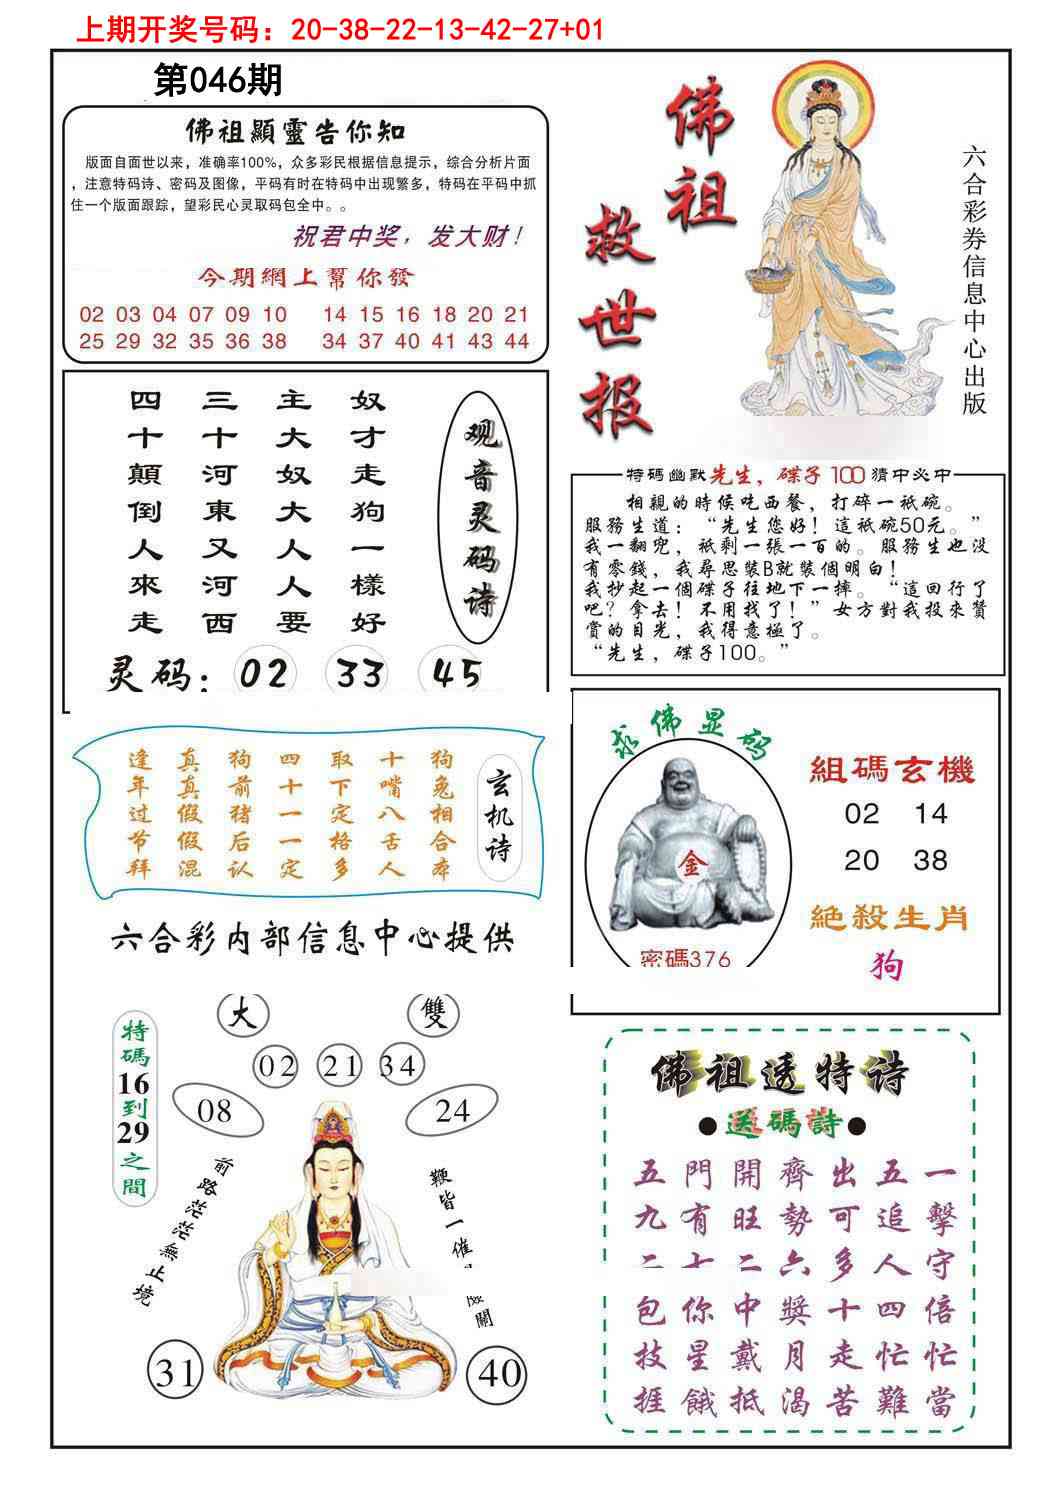 上期开奖号码：20-38-22-13-42-27+01
第046期
佛祖顯靈告你知
版面自面世以来，准确率100%，众多彩民根据信息提示，综合分析片面
，注意特码诗、密码及图像，平码有时在特码中出现繁多，特码在平码中抓
住一个版面跟踪，望彩民心灵取码包全中。。
祝君中奖，发大财！
今期網上幫你發
02 03 04 07 09 10 14 15 16 18 20 21
25 29 32 35 36 38 34 37 40 41 43 44
佛祖
救世报
六合彩券信息中心出版
观音灵码诗
奴才走狗一樣好
主大奴大人人要
三十河東又河西
四十顛倒人來走
灵码：02 33 45
特碼幽默先生，碟子100猜中必中
相親的時候吃西餐，打碎一祗碗。
服務生道：“先生您好！這祗碗50元。”
我一翻兜，祗剩一張一百的。服務生也没
有零錢，我尋思裝B就裝個明白！
我抄起一個碟子往地下一摔。“這回行了
吧？拿去！不用找了！”女方對我投來贊
賞的目光，我得意極了。
“先生，碟子100。”
玄机诗
狗兔相合本
十嘴八舌人
取下定格多
四十一一定
狗前猪后认
真真假假混
逢年过节拜
六合彩内部信息中心提供
求佛显码
金
密碼376
組碼玄機
02 14
20 38
絕殺生肖
狗
大 雙
特碼16到29之間
02 21 34
08 24
前路茫茫無止境
鞭皆一催
關
31 40
佛祖透特诗
●送碼詩●
五門開齊出五一
九有旺勢可追擊
二十二六多人守
包你中獎十四倍
技星戴月走忙忙
捱餓抵渴苦難當